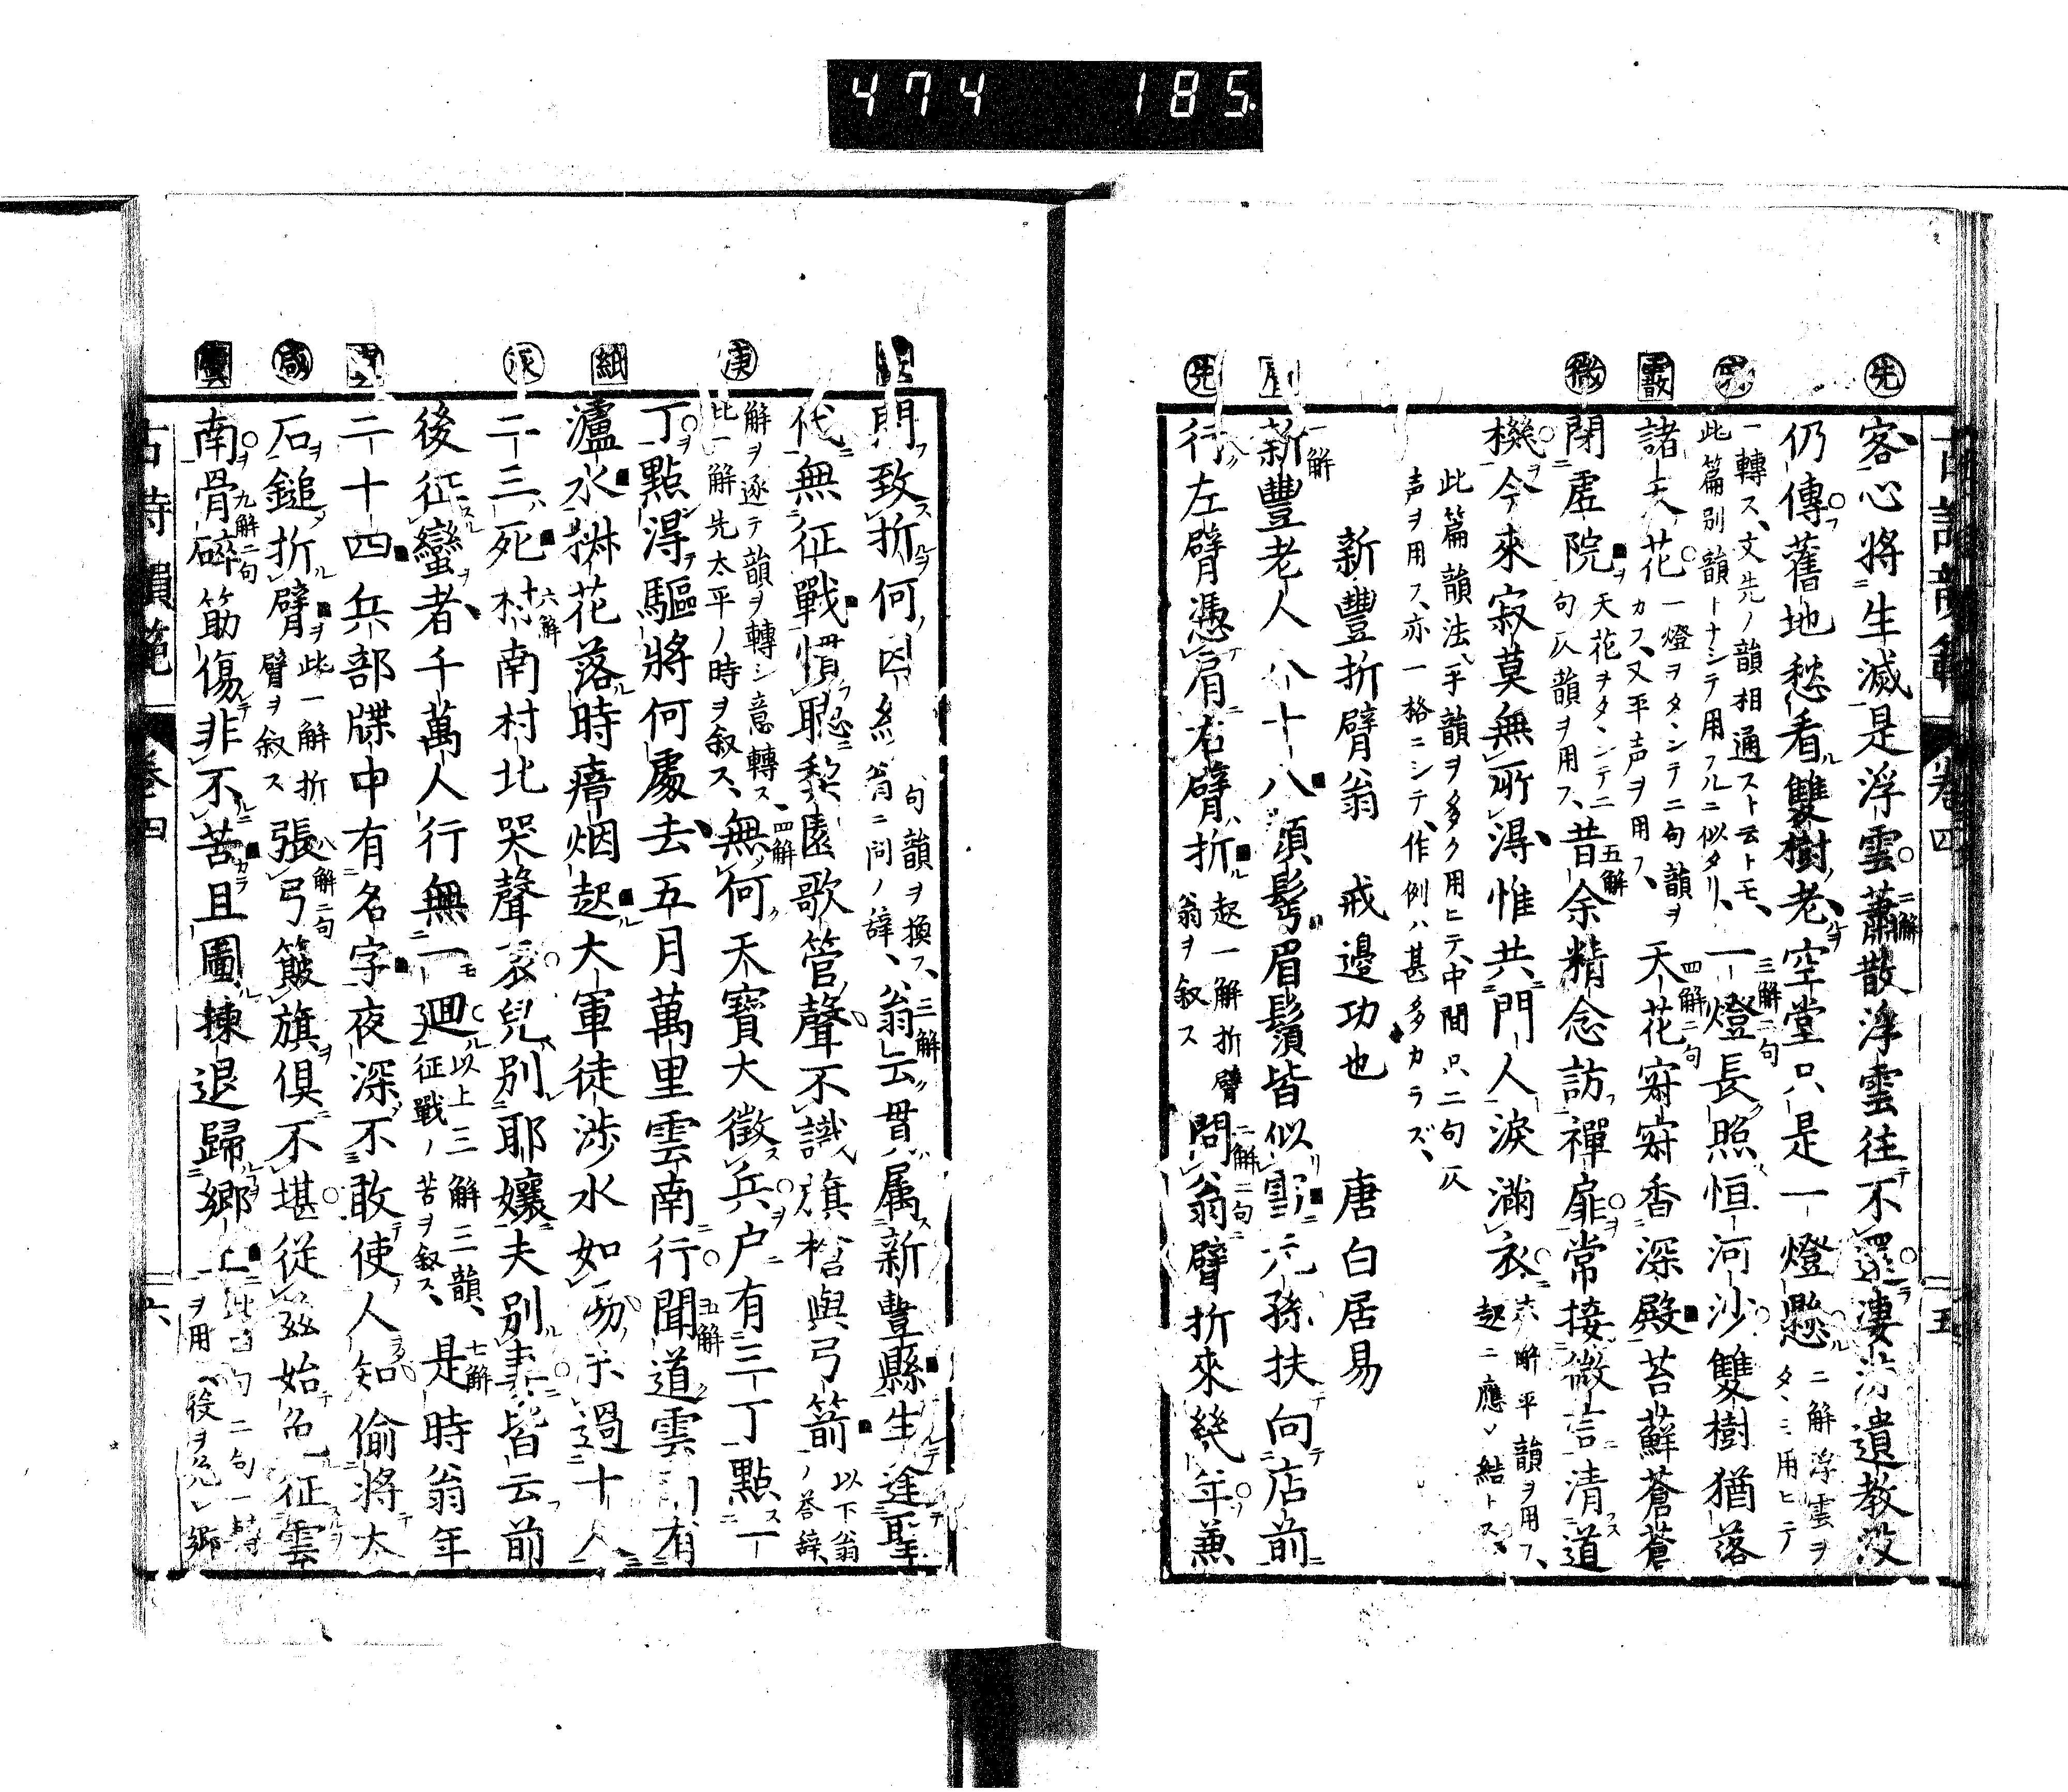 474 185
先
客心將生滅是浮雲二解蕭散浮雲往不還淒涼遺教沒
仍傳舊地愁看雙樹老空堂只是一燈懸二解浮雲ヲタヽミ用ヒテ
一轉ス、文先ノ韻相通ストモ云トモ、此篇別韻トナシテ用フルニ似タリ、三解二句一燈長照恒河沙雙樹猶落
霰
諸天花一燈ヲタヽンテ二句韻ヲカフ、又平声ヲ用フ、四解二句天花寂寂香深殿苔蘚蒼蒼
微
閉虛院天花ヲタヽンテ二句仄韻ヲ用フ、五解昔余精念訪禪扉常接微言清道
機今來寂莫無所淂惟共門人淚滿衣六解平韻ヲ用フ、起ニ應ノ結トス
此篇韻法、平韻ヲ多ク用ヒテ、中間只二句仄
声ヲ用フ、亦一格ニシテ、作例ハ甚多カラズ、
新豐折臂翁　戒邊功也　唐白居易
一解新豐老人八十八頭鬢眉鬚皆似雪玄孫扶向店前
先
行左臂憑肩右臂折起一解折臂翁ヲ叙ス二解二句問翁臂折來幾年兼
古詩韻範　卷四　二五
問致折何因緣句韻ヲ換フ、翁ニ問ノ辞、三解翁云貫属新豐縣生逢聖
代無征戰慣聽梨園歌管聲不識旗槍與弓箭以下翁ノ荅辞、
庚
解ヲ逐テ韻ヲ轉シ意轉ス、此一解先太平ノ時ヲ叙ス、四解無何天寶大徵兵户有三丁點一
丁點淂驅將何處去五月萬里雲南行五解聞道雲南有
紙
瀘水椒花落時瘴烟起大軍徒涉水如湯未過十人
灰
二三死六解村南村北哭聲哀兒別耶孃夫別妻皆云前
後征蠻者千萬人行無一廻以上三解三韻、征戰ノ苦ヲ叙ス、七解是時翁年
二十四兵部牒中有名字夜深不敢使人知偷將大
咸
石鎚折臂此一解折臂ヲ叙ス八解二句張弓簸旗俱不堪從茲始免征雲
南九解二句骨碎筋傷非不苦且圖揀退歸鄉土
古詩韻範　卷四　二六